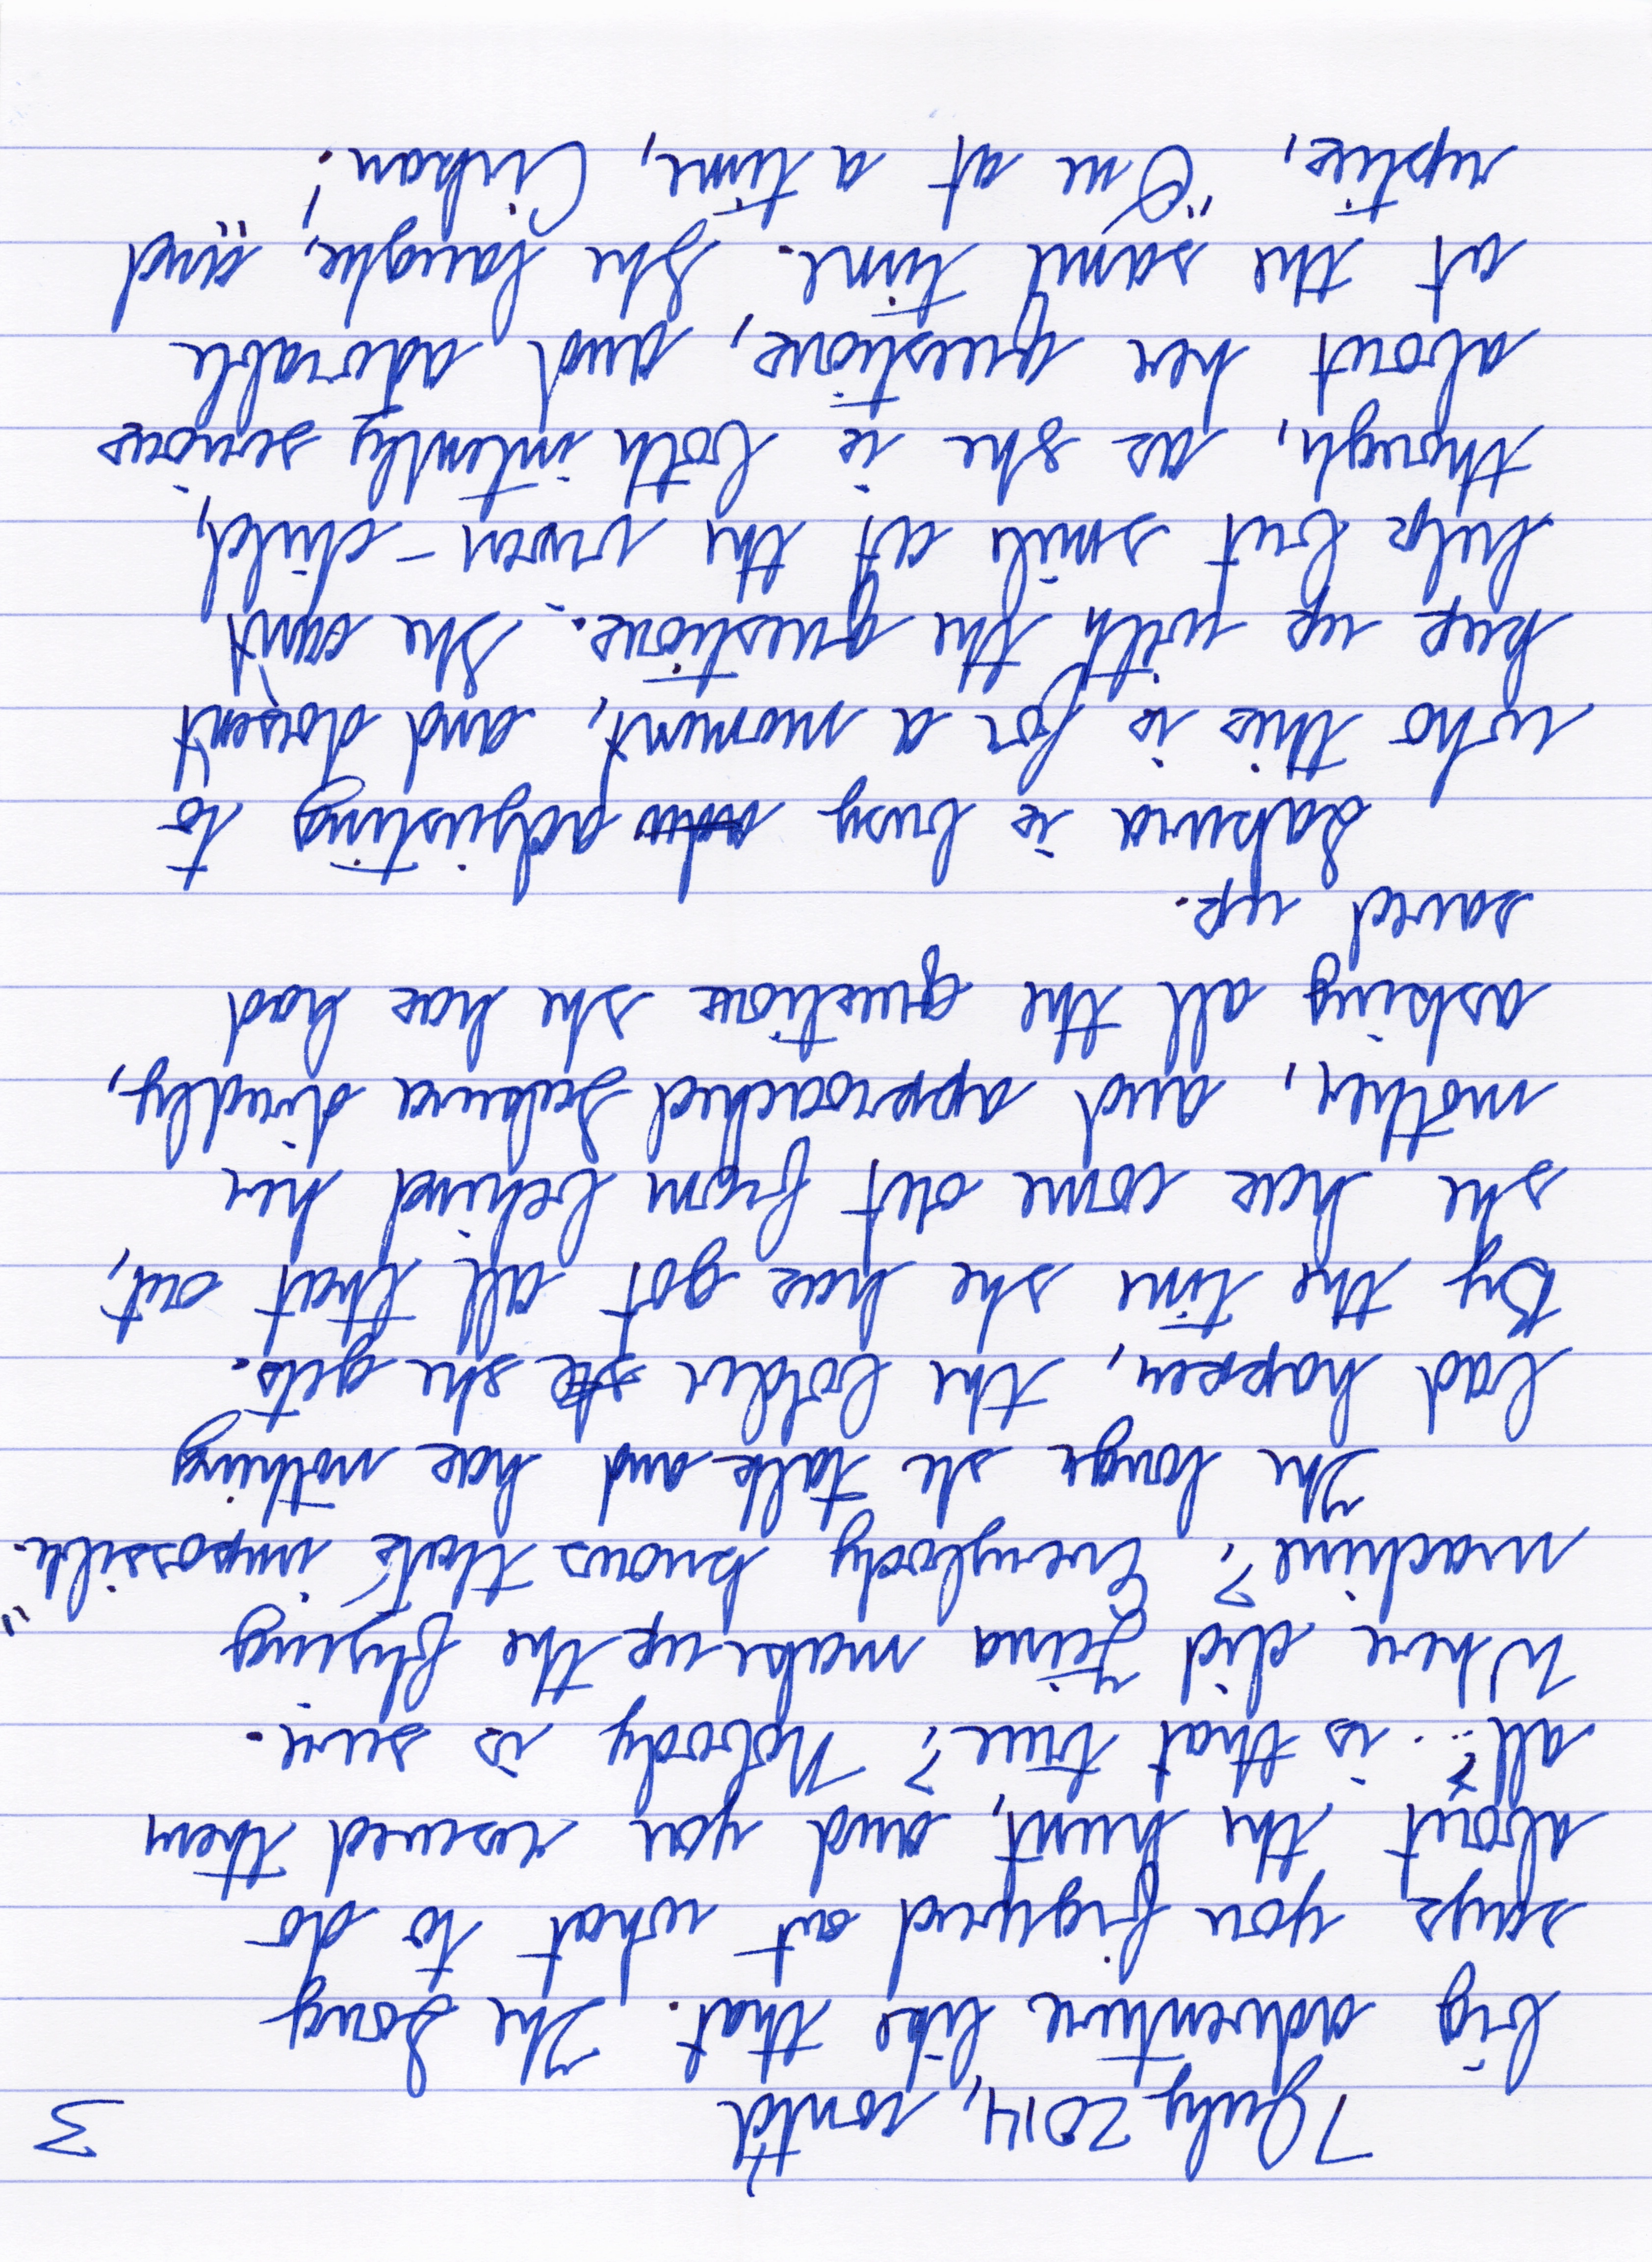 7 July 2014, cont'd
3
big adventure like that. The Song
says you figured out what to do
about the hunt, and you rescued them
all?... is that true? Nobody is sure.
Where did Jina make up the flying
machine? Everybody knows that's impossible."
The longer she talks and has nothing
bad happen, the bolder she gets.
By the time she has got all that out,
she has come out from behind her
mother, and approached Sakura directly,
asking all the questions she has had
saved up.
Sakura is busy adjusting to
who this is for a moment, and doesn't
keep up with the questions. She can't
help but smile at the wren-child,
though, as she is both intently serious
about her questions, and adorable
at the same time. She laughs, and
replies, "One at a time, Cirban!